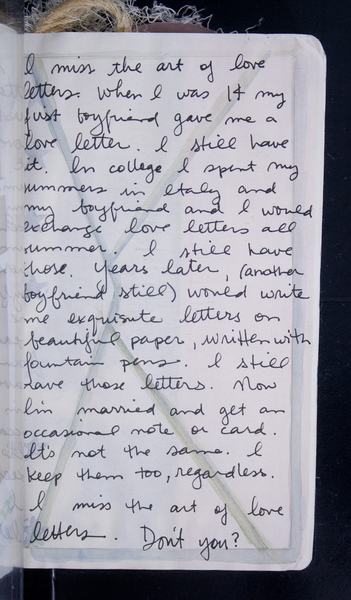 I miss the art of love
letters. When I was 14 my
first boyfriend gave me a
love letter. I still have
it. In college I spent my
summers in Italy and
my boyfriend and I would
exchange love letters all
summer. I still have
those. Years later, (another
boyfriend still) would write
me exquisite letters on
beautiful paper, written with
fountain pens. I still
have those letters. Now
I'm married and get an
occasional note or card.
It's not the same. I
keep them too, regardless.
I miss the art of love
letters. Don't you?